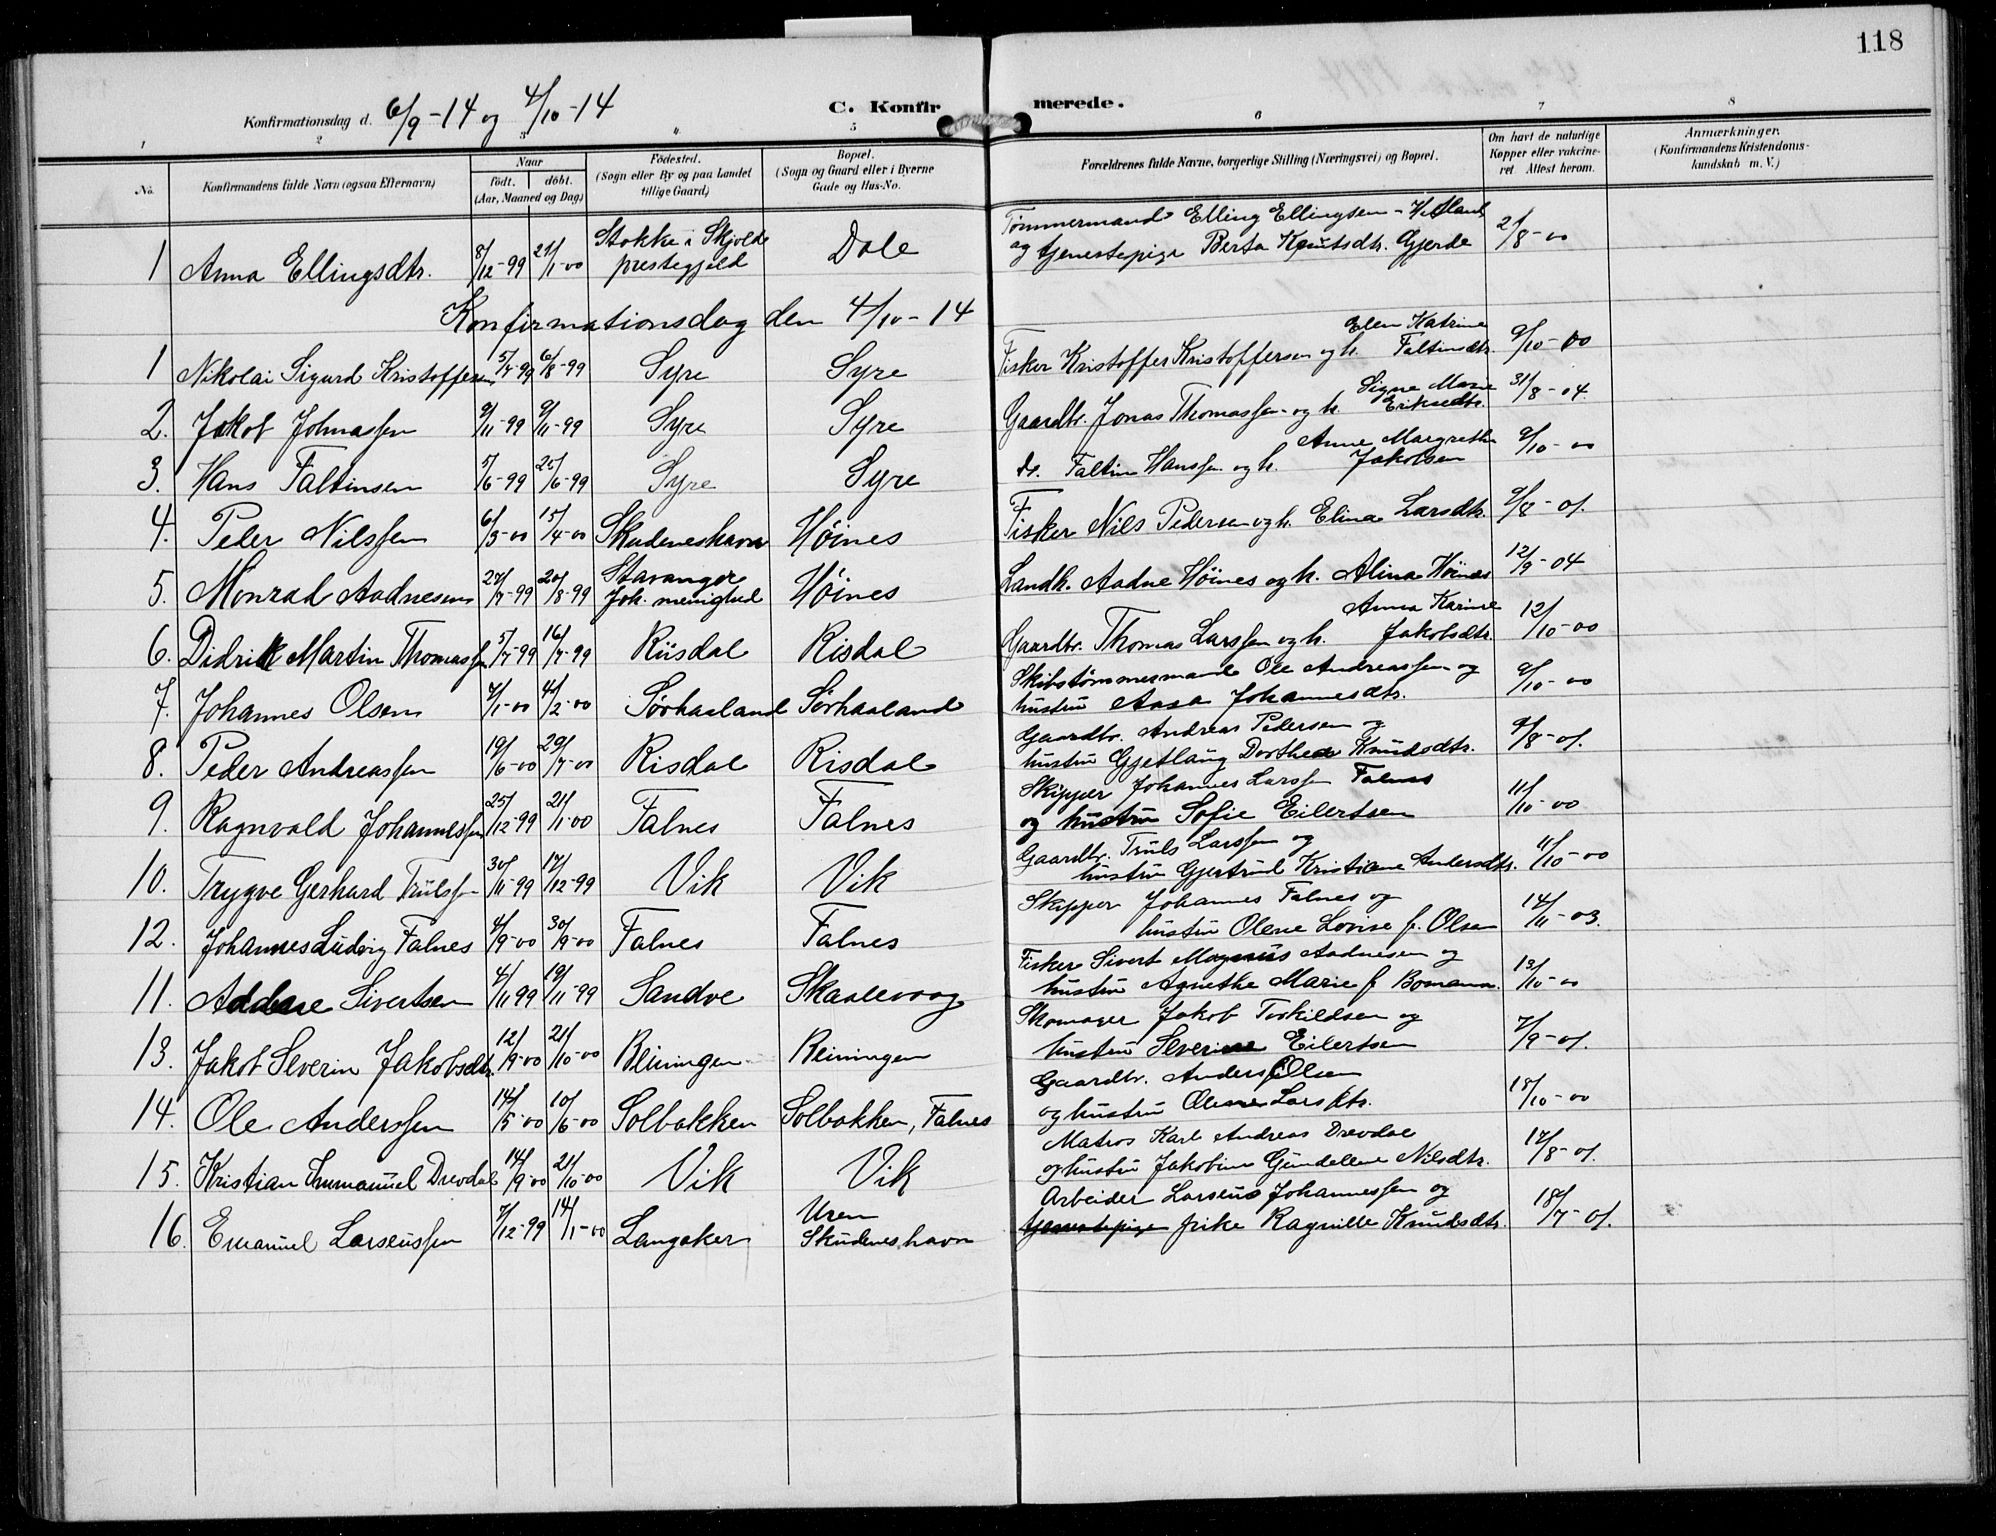 118
Konfirmationsdag d. 6/9-14 og 4/10-14
C. Konfirmerede.
1 2 3 4 5 6 7 8
No.
Konfirmandens fulde Navn (ogsaa Efternavn)
Naar
födt. döbt.
(Aar, Maaned og Dag)
Födested.
(Sogn eller By og paa Landet tillige Gaard)
Bopæl.
(Sogn og Gaard eller i Byerne Gade og Hus-No.
Forældrenes fulde Navne, borgerlige Stilling (Næringsvei) og Bopæl.
Om havt de naturlige Kopper eller vakcineret Attest herom.
Anmærkninger.
(Konfirmandens Kristendomskundskab m. V.)
1 Anna Ellingsdtr. 8/12-99 21/1-00 Stokke i Skjold prestegjeld Dale Tømmermand Elling Ellingsen og tjenestepige Berta Knutsdtr. Gjerde 21/8-00
Konfirmationsdag den 4/10-14
1 Nikolai Sigurd Kristoffersen 5/7-99 6/8-99 Syre Syre Fisker Kristoffer Kristoffersen og h. Elen Katrine Faltinsdtr. 9/10-00
2. Jakob Johnassen 9/11-99 9/11-99 Syre Syre Gaardbr. Jonas Thomassen og h. Signe Marie Eriksdtr. 31/8-04
3. Hans Faltinsen 5/6-99 25/6-99 Syre Syre do. Faltin Hanssen og h. Anne Margrethe Jakobsen 9/10-00
4. Peder Nilssen 6/3-00 15/4-00 Skudeneshavn Höines Fisker Nils Pedersen og h. Elina Larsdtr. 9/8-01.
5. Monrad Aadnesen 27/7-99 20/8-99 Stavanger Joh. menighed Höines Landh. Aadne Höines og h. Alina Höines 12/9-04
6. Didrik Martin Thomassen 5/7-99 16/7-99 Riisdal Risdal Gaardbr. Thomas Larssen og h. Anna Karine Jakobsdtr. 12/10-00
7. Johannes Olsen 7/1-00 4/2-00 Sørhaaland Sørhaaland Skibstømmermand Ole Andreassen og hustru Aasa Johannesdtr. 9/10-00
8. Peder Andreassen 19/6-00 29/7-00 Risdal Risdal Gaardbr. Andreas Pedersen og hustru Gjetlaug Dorthea Knudsdtr. 9/8-01.
9. Ragnvald Johannessen 25/12-99 21/1-00 Falnes Falnes Skipper Johannes Larssen Falnes og hustru Sofie Eilertsen 11/10-00
10. Trygve Gerhard Trulssen 30/11-99 17/12-99 Vik Vik Gaardbr. Truls Larssen og hustru Gjertrud Kristiane Andersdtr. 11/10-00
12. Johannes Ludvig Falnes 4/9-00 30/9-00 Falnes Falnes Skipper Johannes Falnes og hustru Olene Lovise f. Olsen 14/11-03.
11. Sivertsen 4/11 99 19/11-99 Sandve Skaalevaag Fisker Sivert Magnus Aadnesen og hustru Agnethe Marie f 13/10-00
13. Jakob Severin Jakobsdtr. 12/9-00 21/10-00 Reiningen Reiningen Skomager Jakob Torkildsen og hustru Severine Eilertsen 7/9-01.
14. Ole Anderssen 14/5-00 10/6-00 Solbakken Solbakken, Falnes Gaardbr. Anders Olsen og hustru Olene Larsdtr. 18/10-00
15. Kristian Immanuel Drevdal 14/9-00 21/10-00 Vik Vik Matros Karl Andreas Drevdal og hustru Jakobine Gundeline Nilsdtr. 17/8-01.
16. Emanuel Larseussen 7/12-99 14/1-00 Langaker Uren Skudeneshavn Arbeider Larseus Johannessen og tjenestepige pike Ragnille Knudsdtr. 18/7-01.